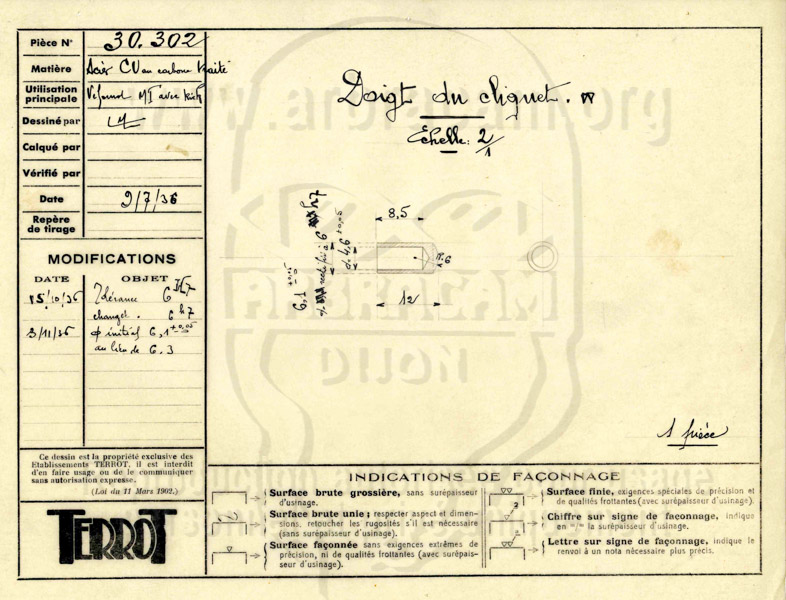 Pièce N° 30.302
Matière Acier CV au carbone traité
Utilisation
principale
avec kick
Dessiné par
Calqué par
Vérifié par
Date 9/7/36
Repère
de tirage
MODIFICATIONS
DATE OBJET
15/10/36 Tolérance 6 H7
changée. 6 h7
3/11/36 φ initial 6,1 +0,05
au lieu de 6.3
Ce dessin est la propriété exclusive des
Etablissements TERROT, il est interdit
d'en faire usage ou de le communiquer
sans autorisation expresse.
(Loi du 11 Mars 1902.)
TERROT
Doigt du cliquet.
Echelle: 2/1
8,5
12
r.6
φ 4,6 +0,05
6,1
1 pièce
www.arbracam.org
ARBRACAM
DIJON
INDICATIONS DE FAÇONNAGE
Surface brute grossière, sans surépaisseur
d'usinage.
Surface brute unie; respecter aspect et dimen-
sions, retoucher les rugosités s'il est nécessaire
(sans surépaisseur d'usinage).
Surface façonnée sans exigences extrêmes de
précision, ni de qualités frottantes (avec surépais-
seur d'usinage).
Surface finie, exigences spéciales de précision et
de qualités frottantes (avec surépaisseur d'usinage).
Chiffre sur signe de façonnage, indique
en la surépaisseur d'usinage.
Lettre sur signe de façonnage, indique le
renvoi à un nota nécessaire plus précis.